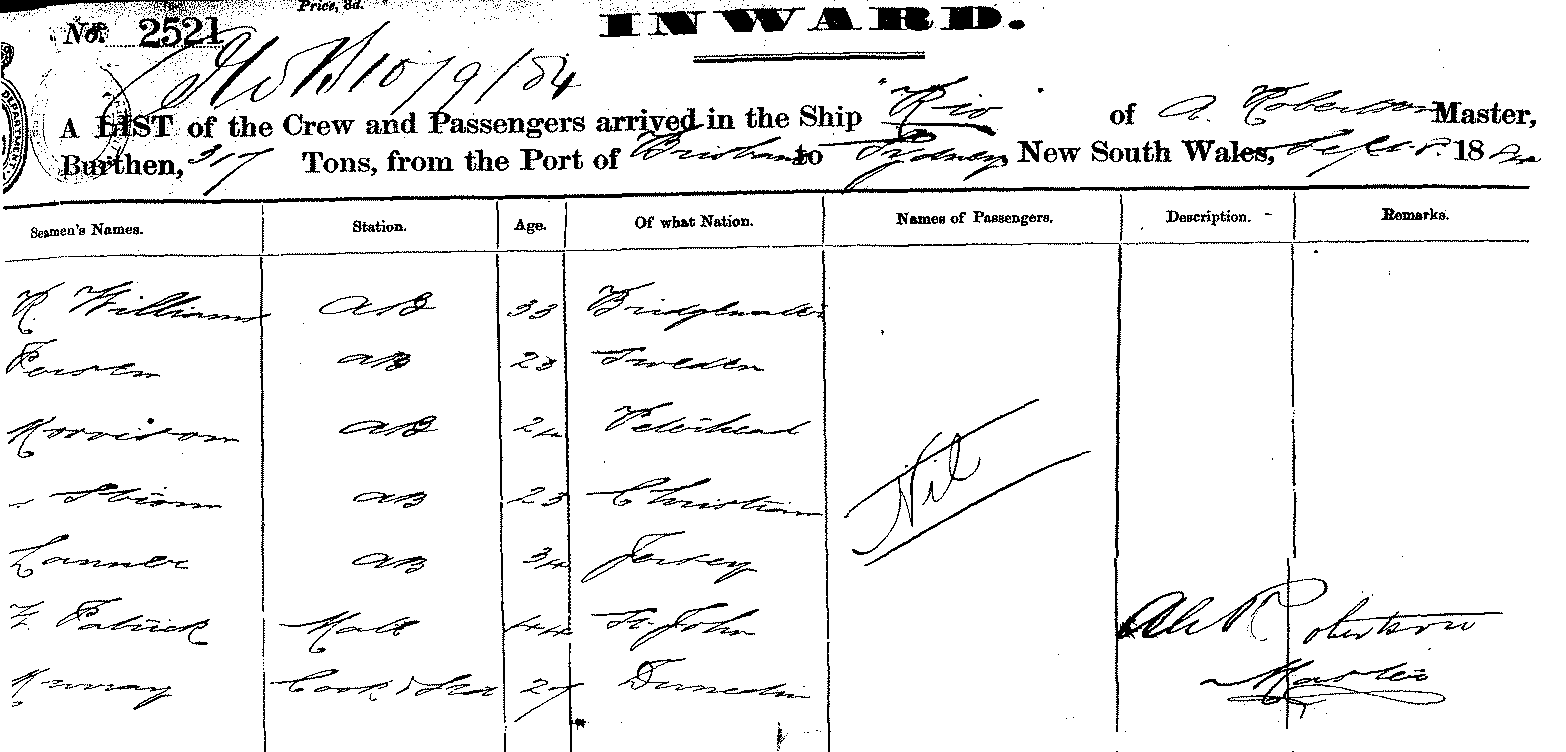 Price, 3d.
No. 2521
INWARD.
10/9/84
A LIST of the Crew and Passengers arrived in the Ship "Rio" of A. Robertson Master,
Burthen, 317 Tons, from the Port of Brisbane to Sydney New South Wales, Sept. 188
Seamen's Names. Station. Age. Of what Nation. Names of Passengers. Description. Remarks.
R. Williams AB 33 Bridgwater
AB 23 Sweden
Morrison AB 24 Peterhead
AB 23 Christian
AB 34 Jersey
Nil
Z. Patrick Mate 44 St. John
Murray Cook & Std 27 Dunedin
Alex Robertson
Master